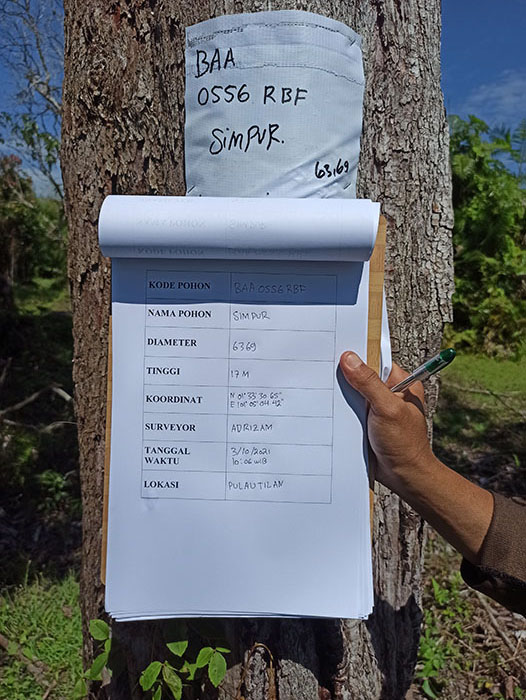 BAA
0556 RBF
SIMPUR.
63,69
KODE POHON BAA 0556 RBF
NAMA POHON SIMPUR
DIAMETER 63 69
TINGGI 17 M
KOORDINAT N 01° 33' 30.65"
E 101° 05' 04.42"
SURVEYOR ADRIZAM
TANGGAL 3/10/2021
WAKTU 10:06 WIB
LOKASI PULAU TILAN